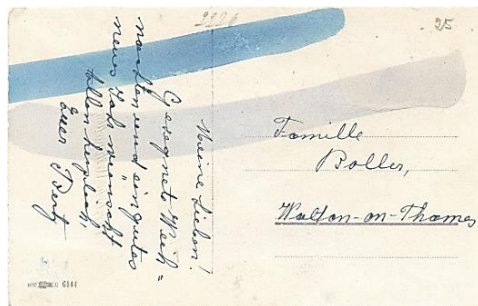 2226
25
Meine Lieben!
Gesegnete Weih=
nachten und ein gutes
neues Jahr wünscht
allen herzlich,
Euer
Famille
Boller,
Walton-on-Thames
6144